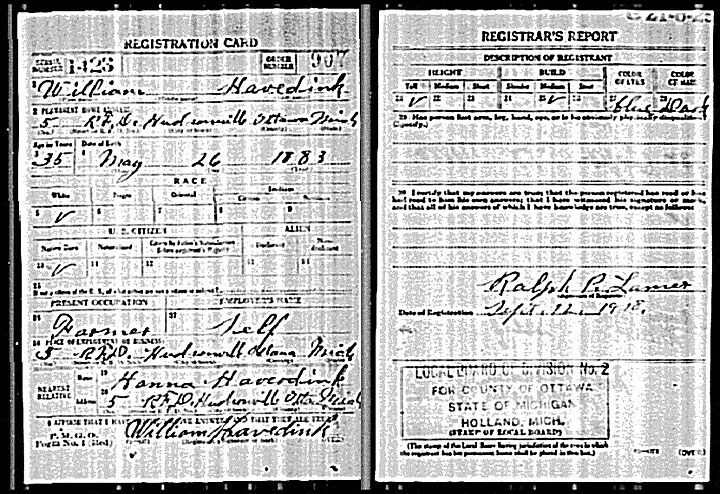 REGISTRATION CARD
SERIAL NUMBER 1423 ORDER NUMBER 907
William Havedink
2 PERMANENT HOME ADDRESS
5 R.F.D. Hudsonville Ottawa Mich
Age in Years Date of Birth
35 May 26 1883
RACE
White Negro Oriental Indian
5 ✓ 6 7 8 9
U. S. CITIZEN ALIEN
Native Born Naturalized
10 ✓ 11 12 13 14
15
If not a citizen of the U. S.,
PRESENT OCCUPATION EMPLOYER'S NAME
Farmer Self
18 PLACE OF EMPLOYMENT OR BUSINESS
5 R.F.D. Hudsonville Ottawa Mich
NEAREST RELATIVE
Name 19 Hanna Havedink
Address 20 5 R.F.D. Hudsonville Otta Mich
I AFFIRM THAT I HAVE
P. M. G. O.
Form No. 1 (Red)
William Havedink
REGISTRAR'S REPORT
DESCRIPTION OF REGISTRANT
HEIGHT BUILD COLOR OF EYES COLOR OF HAIR
Tall Medium Short Slender Medium Stout
21 ✓ 22 23 24 25 ✓ 26 Blue Dark
29 Has person lost arm, leg, hand, eye, or is he obviously physically disqualified?
(Specify.)
30 I certify that my answers are true; that the person registered has read or has
had read to him his own answers; that I have witnessed his signature or mark,
and that all of his answers of which I have knowledge are true, except as follows:
Ralph P. Lamer
Date of Registration Sept. 12, 1918.
LOCAL BOARD OF DIVISION No. 2
FOR COUNTY OF OTTAWA
STATE OF MICHIGAN
HOLLAND, MICH.
(STAMP OF LOCAL BOARD)
(The stamp of the Local Board having jurisdiction of the area in which
the registrant has his permanent home shall be placed in this box.)
(OVER)